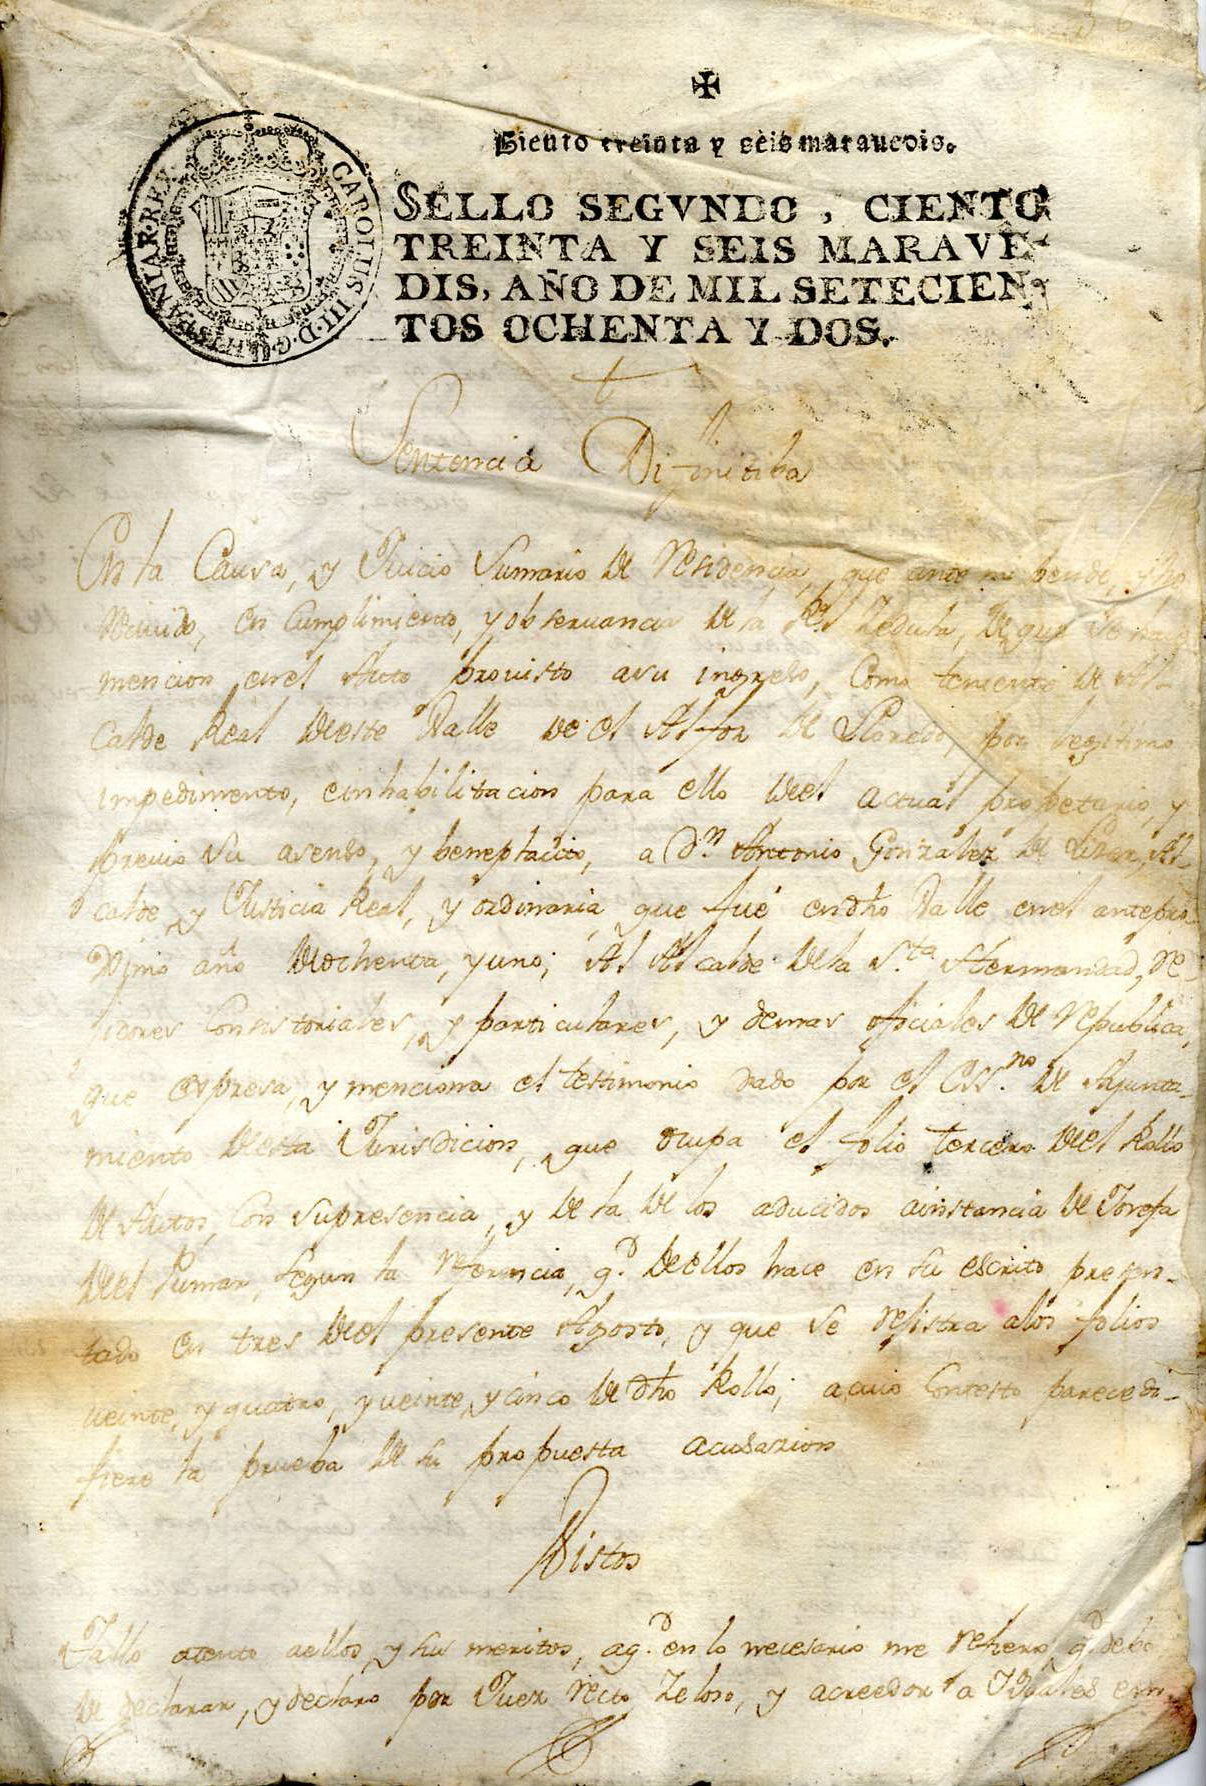 ✠
Siento treinta y seis marauedis.
CAROLUS III. D. G. HISPANIAR. REX
SELLO SEGVNDO, CIENTO
TREINTA Y SEIS MARAVE-
DIS, AÑO DE MIL SETECIEN-
TOS OCHENTA Y DOS.
Sentencia Difinitiba
En la Causa, y Juicio Sumario de residencia, que ante mi pende, y he
reciuido, en cumplimiento, y obseruancia de la Rl Zedula, de que se hace
mencion en el Auto prouisto a su ingreso, como teniente de Al-
calde Real de este Valle de el Alfoz de Lloredo, por legitimo
impedimento, e inhabilitacion para ello del actual propetario, y
preuio su asenso, y beneplacito, a Dn. Antonio Gonzalez de Al-
calde, y Justicia Real, y ordinaria que fué en dho Valle en el antepro-
ximo año de ochenta, y uno; Al Alcalde de la Sta. Hermandad, Re-
jidores Consistoriales, y particulares, y demas oficiales de republica,
que expresa, y menciona el testimonio dado por el Essno. de Ajunta-
miento de esta Jurisdicion, que ocupa el folio tercero del Rollo
de Autos, con su presencia, y de la de los aducidos a instancia de Josefa
del Pumar, segun la referencia, q.e de ellos hace en su escrito presen-
tado en tres del presente Agosto, y que se rejistra a los folios
veinte, y quatro, y veinte, y cinco de dho Rollo; a cuio contesto parece di-
fiere la prueba de su propuesta acusazion
Vistos
Fallo atento a ellos, y sus meritos, a q.e en lo necesario me refiero, q.e debo
de declarar, y declaro por Juez recto Zeloso, y acreedor a Iguales em-